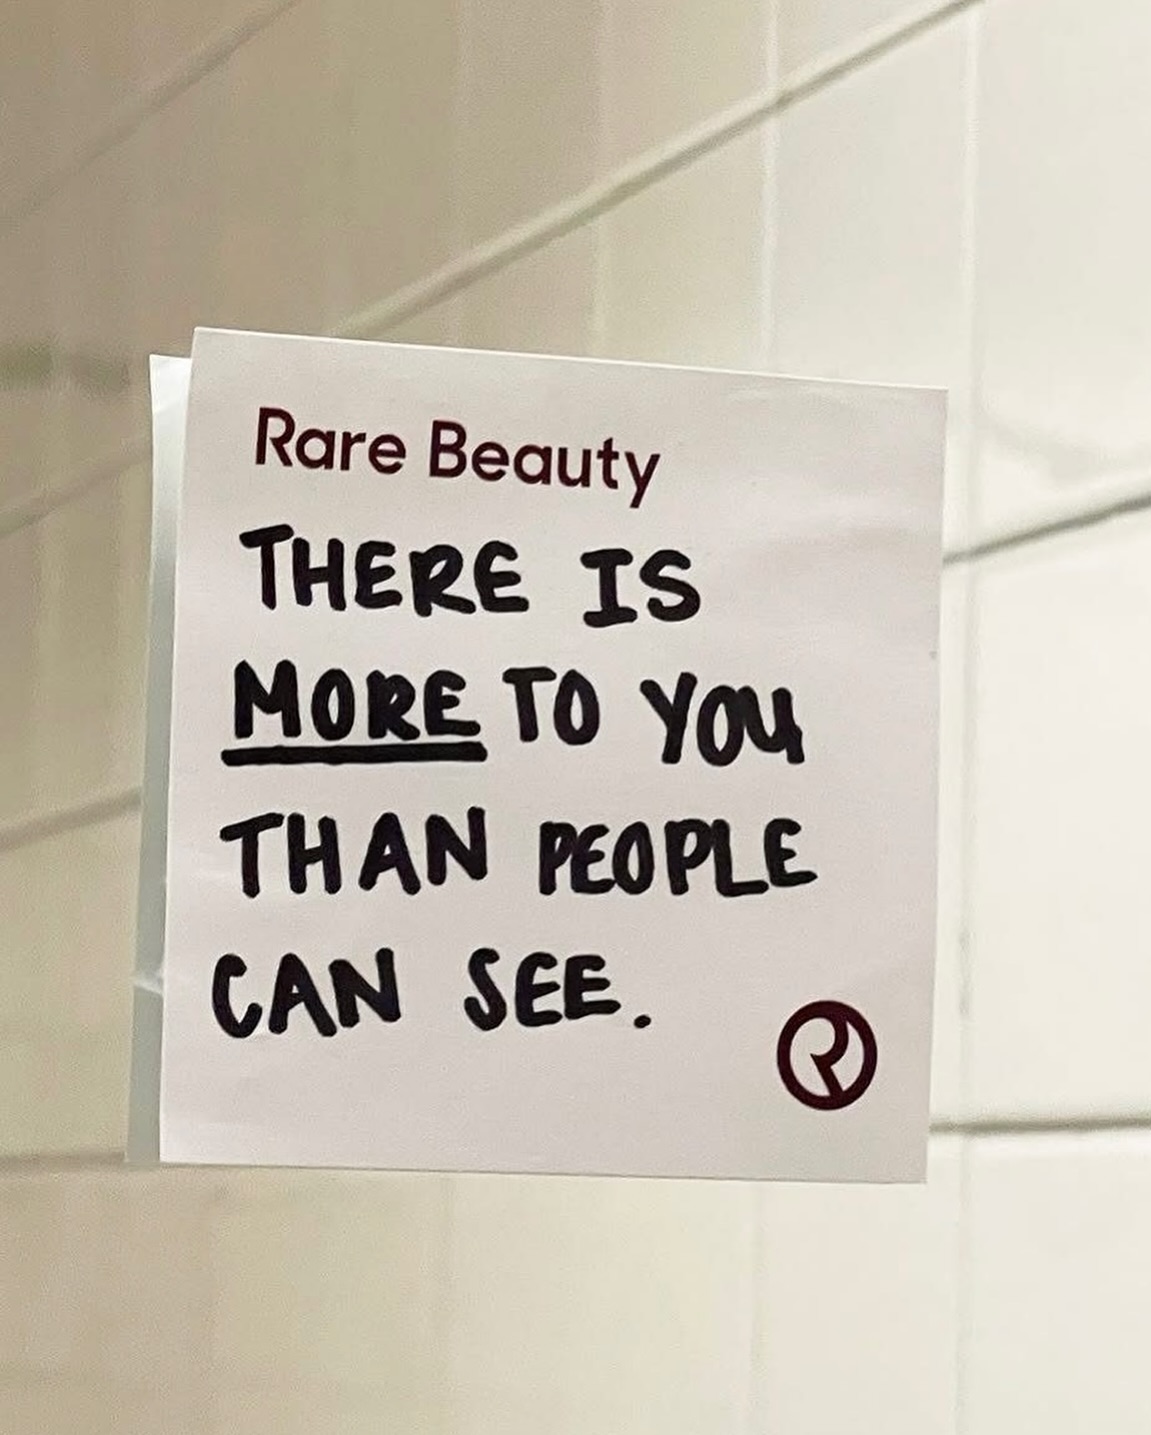 Rare Beauty
THERE IS
MORE TO YOU
THAN PEOPLE
CAN SEE.
R